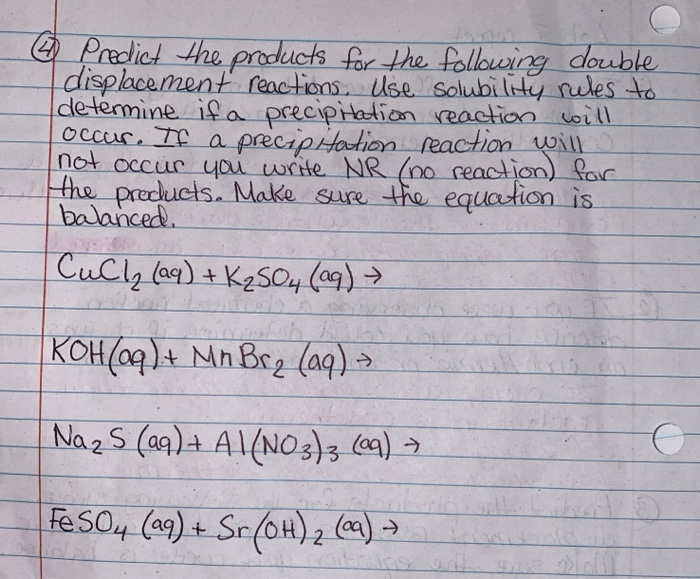 ④ Predict the products for the following double
displacement reactions. Use solubility rules to
determine if a precipitation reaction will
occur. If a precipitation reaction will
not occur you write NR (no reaction) for
the products. Make sure the equation is
balanced.
CuCl₂ (aq) + K₂SO₄ (aq) →
KOH(aq) + MnBr₂ (aq) →
Na₂S (aq) + Al(NO₃)₃ (aq) →
FeSO₄ (aq) + Sr(OH)₂ (aq) →